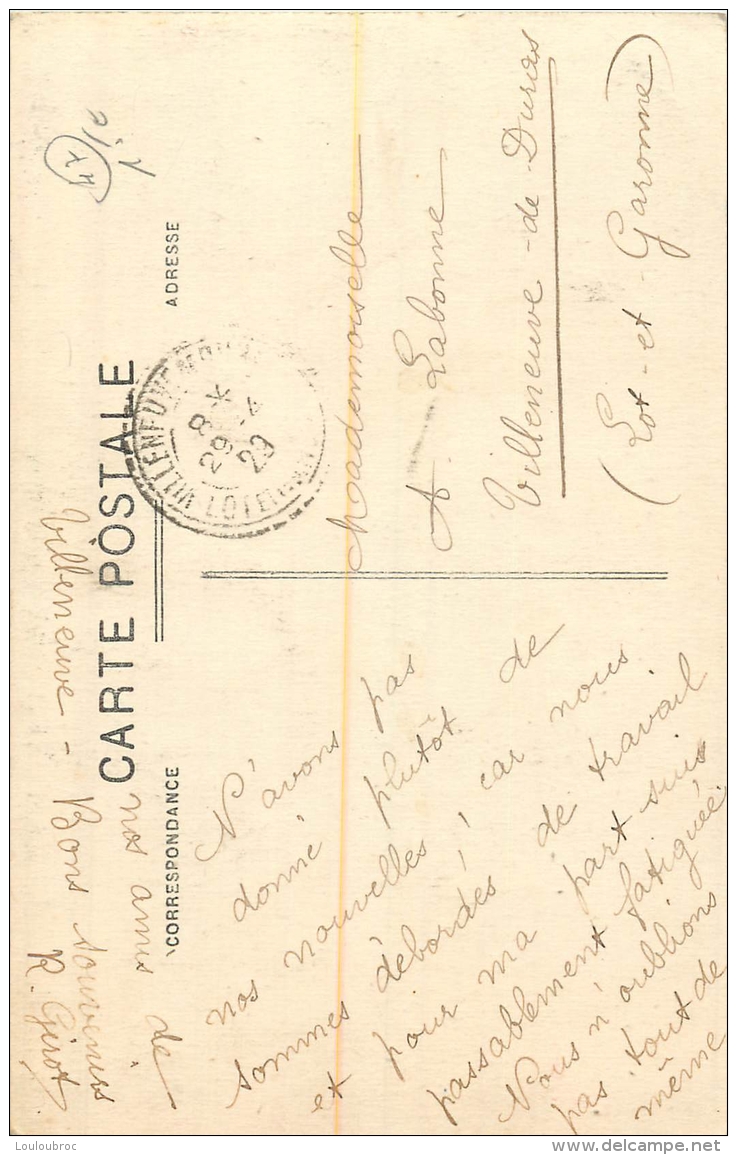 CARTE POSTALE
CORRESPONDANCE
ADRESSE
N'avons pas
donné plutôt de
nos nouvelles, car nous
sommes débordés de travail
et pour ma part suis
passablement fatiguée
Nous n'oublions
pas tout de
même
nos amis de
Villeneuve - Bons souvenirs
R. Girot
Mademoiselle
A. Labonne
Villeneuve-de-Duras
(Lot-et-Garonne)
8 *
29-4
29
Louloubroc
http://www.delcampe.net